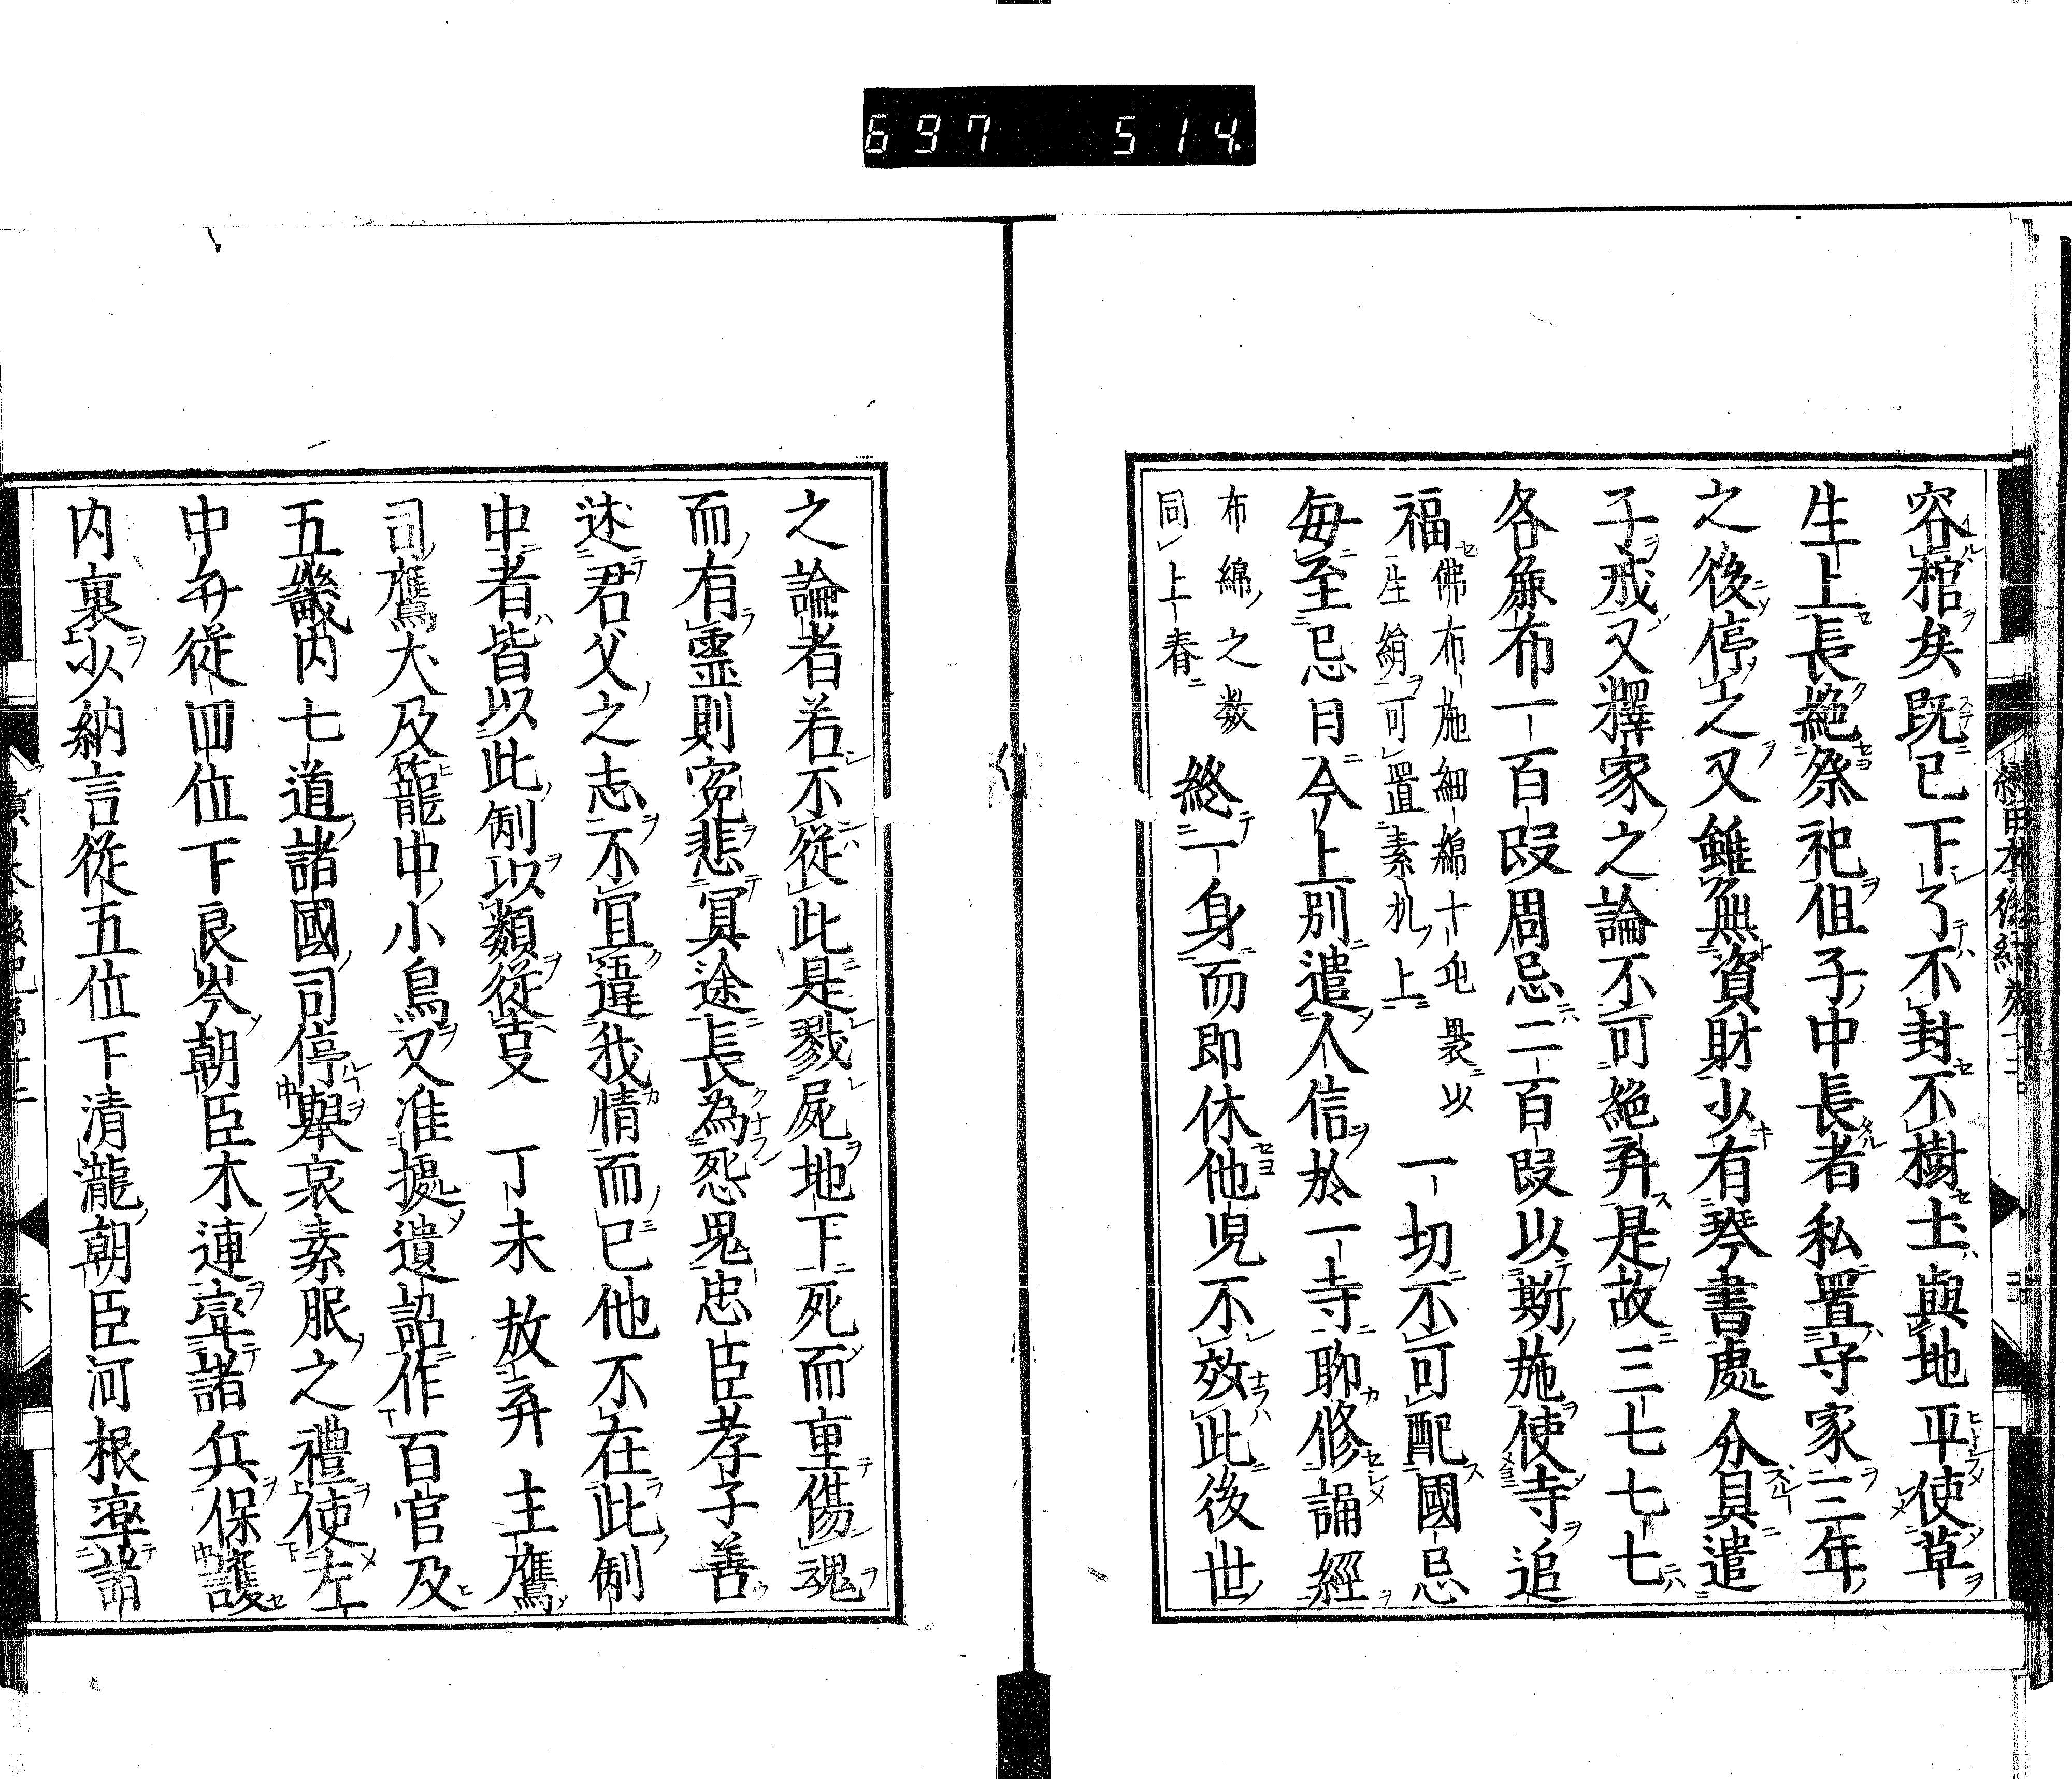 697 514.
容棺矣既已下了不封不樹土與地平使草
生上長絶祭祀但子中長者私置守家三年
之後停之又雖無資財少有琴書處分具遣
子戒又釋家之論不可絶弃是故三七七七
各麁布一百段周忌二百段以斯施使寺追
福佛布施細綿十屯褁以
生絹可置素机上一切不可配國忌
毎至忌日今上別遣人信於一寺聊修誦經
布綿之数
同上春終一身而即休他児不效此後世
之論者若不從此是戮屍地下死而重傷魂
而有靈則寃悲冥途長為死鬼忠臣孝子善
述君父之志不宜違我情而已他不在此制
中者皆以此制以類從支 丁未放弃主鷹
司鷹犬及籠中小鳥又准據遺詔作百官及
五畿内七道諸國司停擧哀素服之禮使左
中弁從四位下良岑朝臣木連率諸兵保護
内裏少納言從五位下清瀧朝臣河根率諸